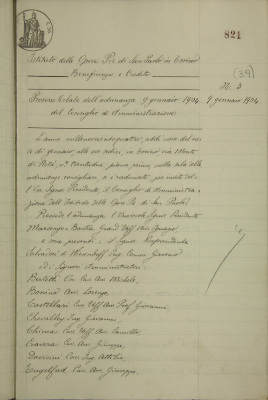 821
Istituto delle Opere Pie di San Paolo in Torino
Beneficenza e Credito
(39)
N. 3
Processo Verbale dell'adunanza 9 gennaio 1904
9 gennaio 1904
del Consiglio di Amministrazione
L'anno millenovecentoquattro, addì nove del me
se di gennaio, alle ore sedici, in Torino via Monte
di Pietà, N.° piano primo, nella sala delle
adunanze consigliare si è radunato, per invito del
Sig. Presidente, il Consiglio di Amministra
zione dell'Istituto delle Opere Pie di San Paolo.
Presiede l'adunanza il Signor Presidente
Marsengo Bastia
e sono presenti: il Signor Vicepresidente
Ing. Comm.
ed i Signori Amministratori:
Bertetti Cav. Avv. Michele,
Bonino Avv. Lorenzo,
Castellari Cav. Uff. Avv. Prof. Giovanni,
Chevalley Ing. Giovanni,
Chiesa Cav. Uff. Avv. Camillo,
Cravero Cav. Avv. Giuseppe,
Cav. Ing.
Engelfred Cav. Avv. Giuseppe,